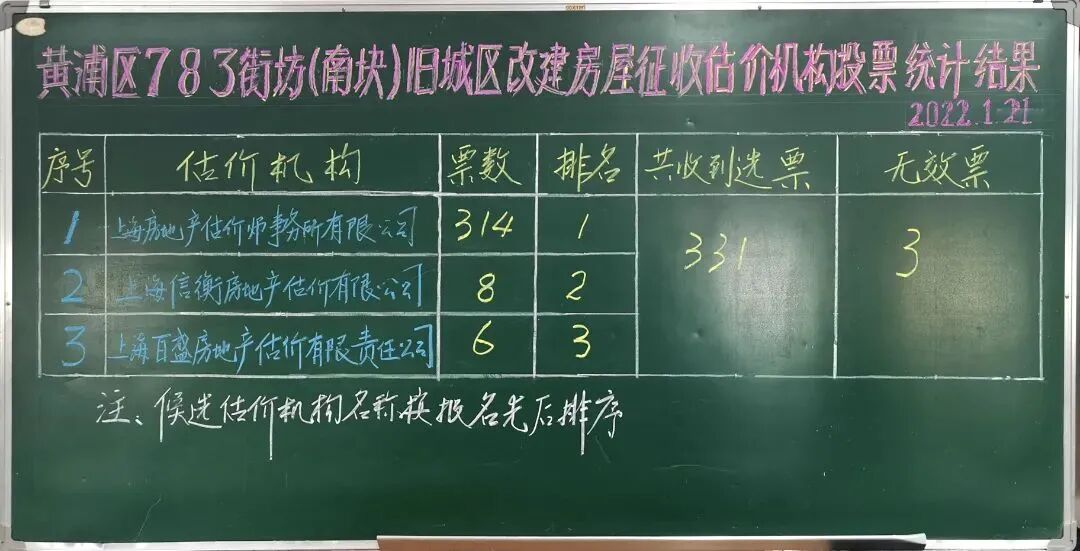 黄浦区783街坊(南块)旧城区改建房屋征收估价机构投票统计结果
2022.1.21
序号 估价机构 票数 排名 共收到选票 无效票
1 上海房地产估价师事务所有限公司 314 1 331 3
2 上海信衡房地产估价有限公司 8 2
3 上海百盛房地产估价有限责任公司 6 3
注:候选估价机构名称按报名先后排序